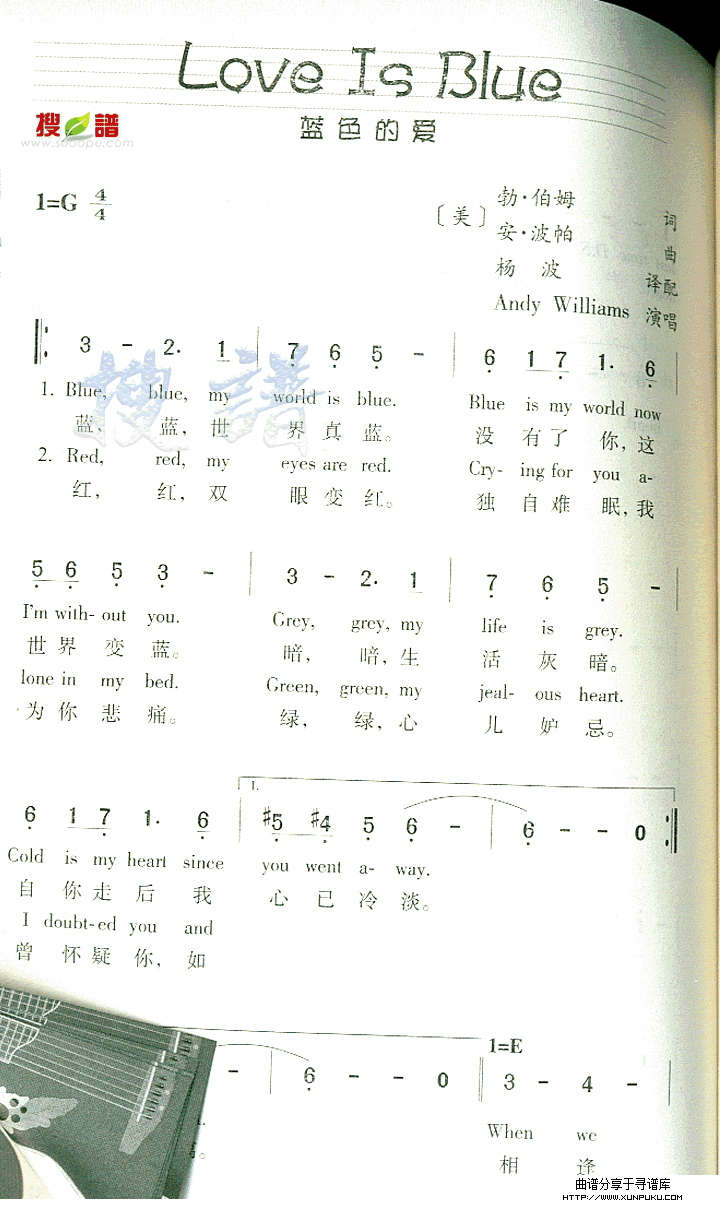 Love Is Blue
蓝色的爱
搜 谱
www.sooopu.com
1=G 4/4
〔美〕 勃·伯姆 词
安·波帕 曲
杨 波 译配
Andy Williams 演唱
3 - 2· 1 | 7 6 5 - | 6 1 7 1· 6
1. Blue, blue, my world is blue. Blue is my world now
蓝, 蓝, 世 界 真 蓝。 没 有 了 你, 这
2. Red, red, my eyes are red. Cry- ing for you a-
红, 红, 双 眼 变 红。 独 自 难 眠, 我
5 6 5 3 - | 3 - 2· 1 | 7 6 5 -
I'm with- out you. Grey, grey, my life is grey.
世 界 变 蓝。 暗, 暗, 生 活 灰 暗。
lone in my bed. Green, green, my jeal- ous heart.
为 你 悲 痛。 绿, 绿, 心 儿 妒 忌。
1.
6 1 7 1· 6 | #5 #4 5 6 - | 6 - - 0
Cold is my heart since you went a- way.
自 你 走 后 我 心 已 冷 淡。
I doubt-ed you and
曾 怀 疑 你, 如
1=E
- | 6 - - 0 || 3 - 4 -
When we
相 逢
曲谱分享于寻谱库
HTTP://WWW.XUNPUKU.COM